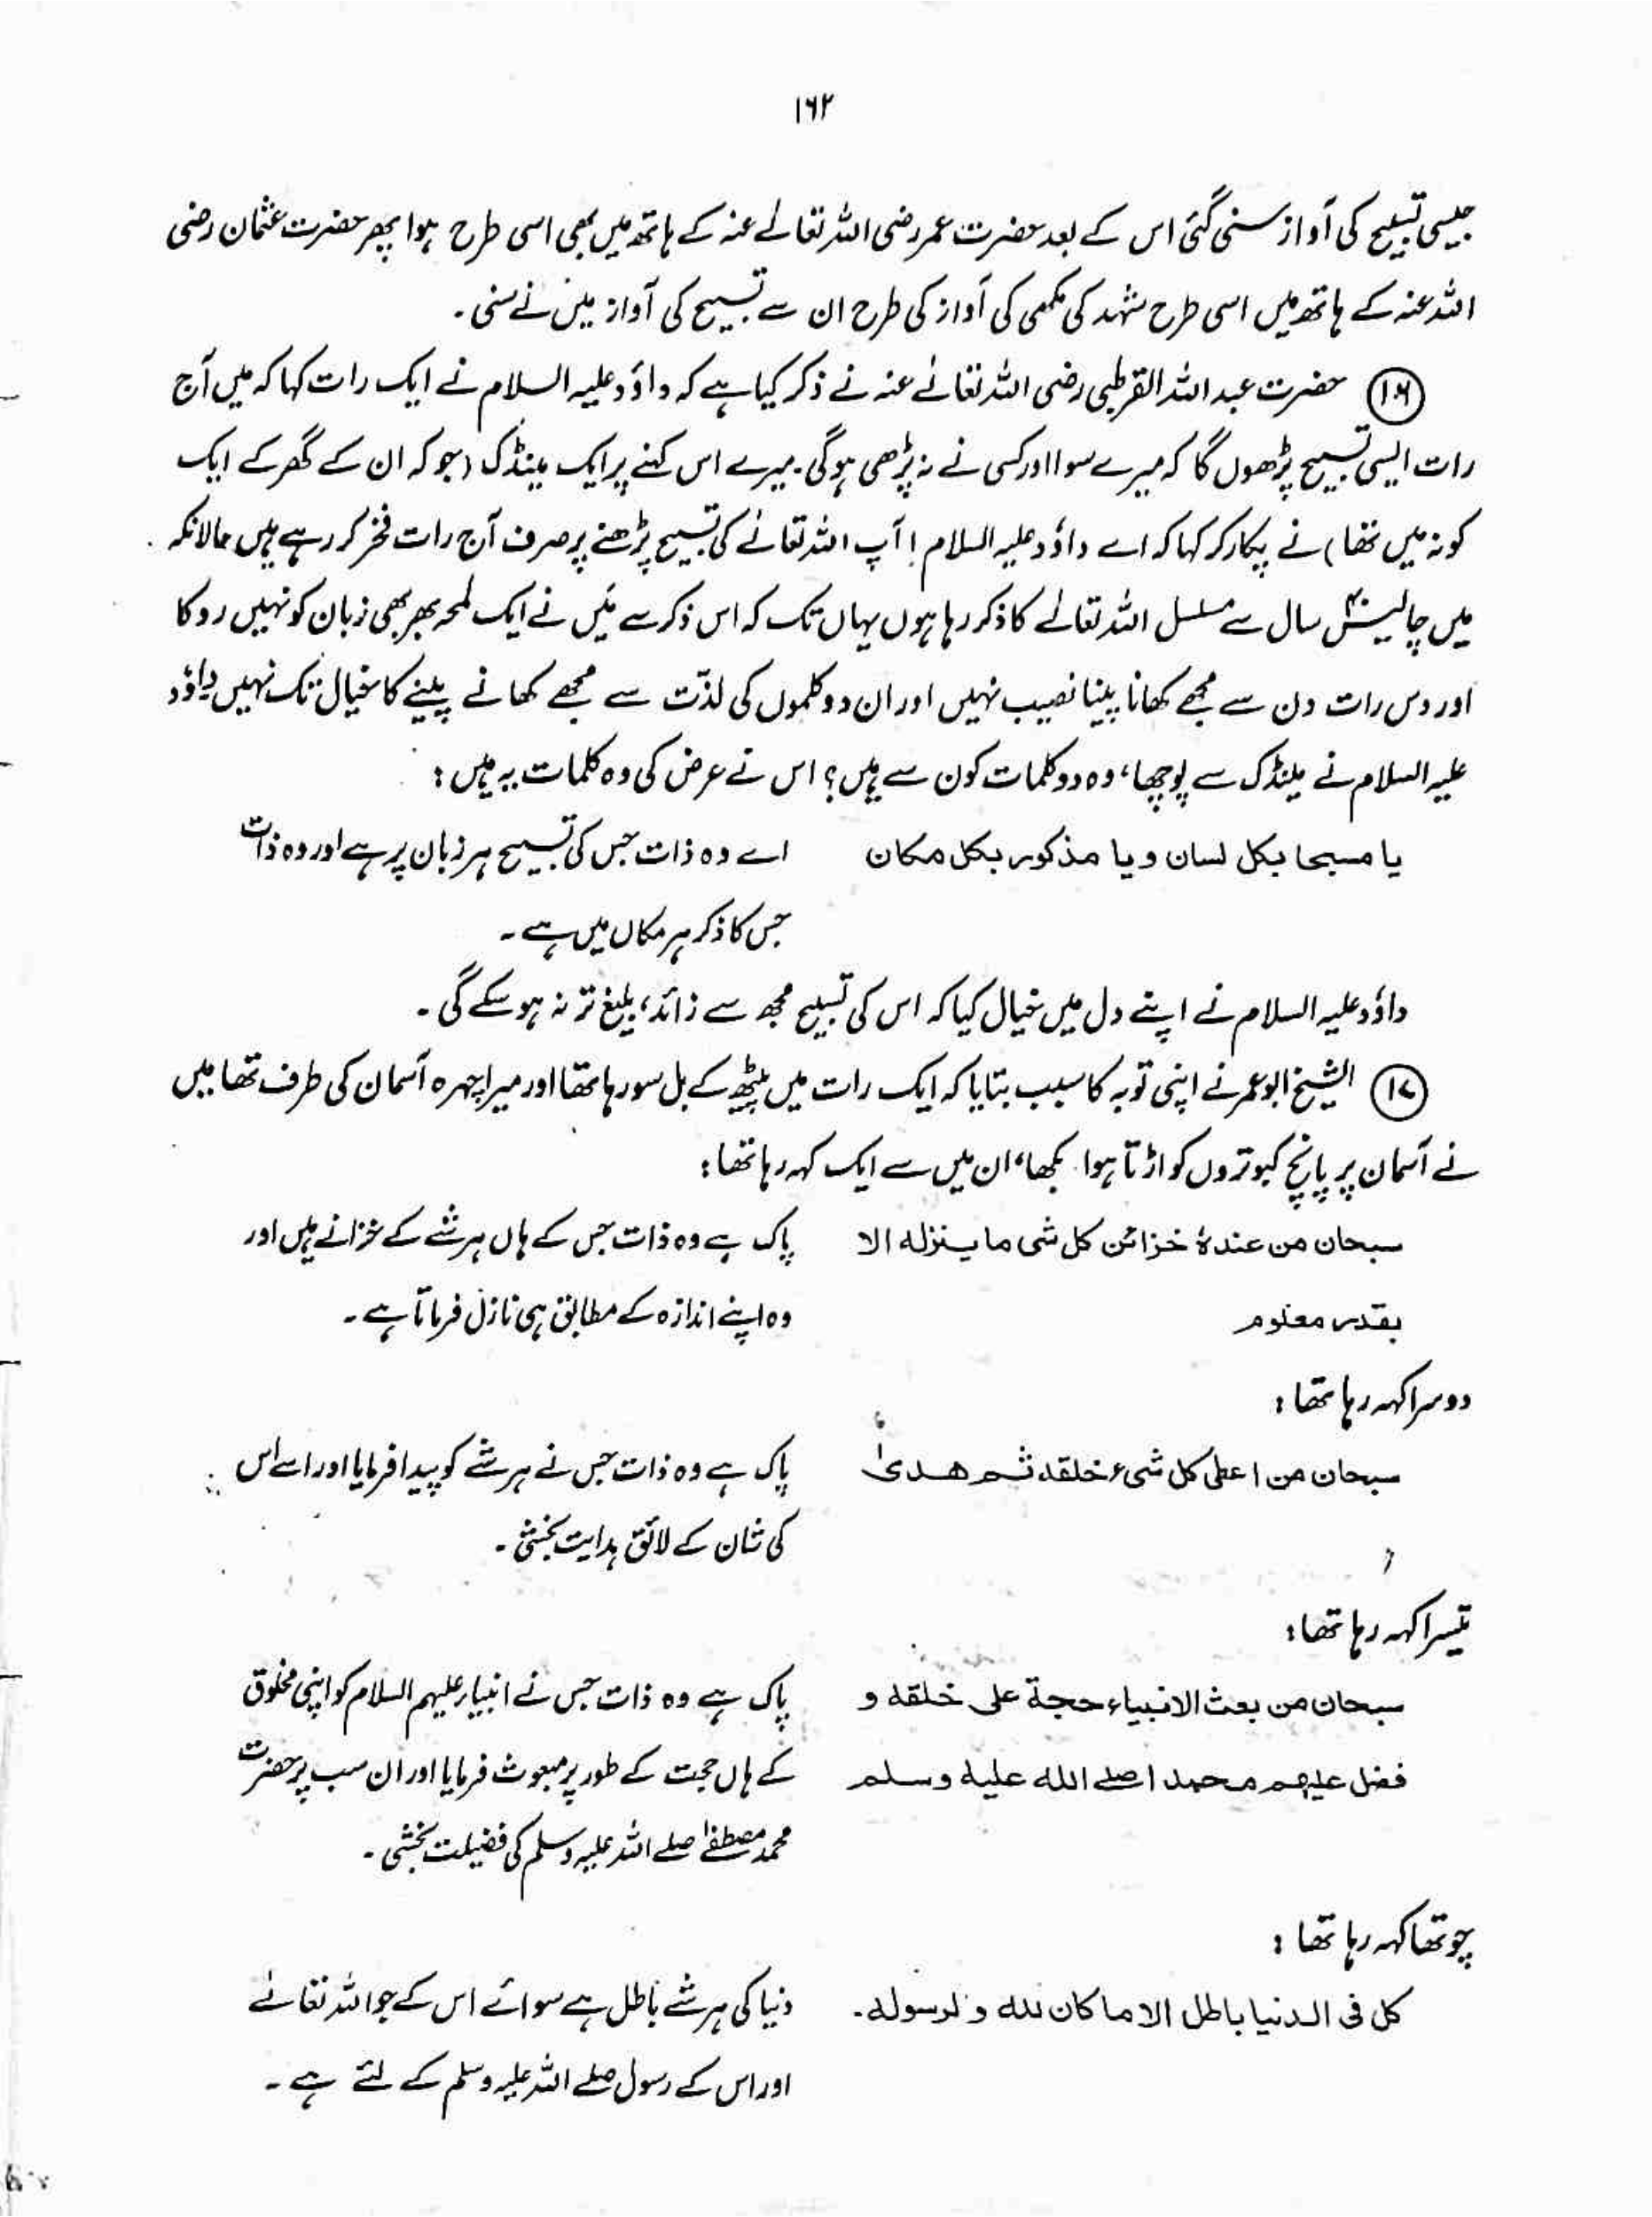 ۱۶۲
جیسی تسبیح کی آواز سنی گئی اس کے بعد حضرت عمر رضی اللہ تعالےٰ عنہ کے ہاتھ میں بھی اسی طرح ہوا پھر حضرت عثمان رضی
اللہ عنہ کے ہاتھ میں اسی طرح شہد کی مکھی کی آواز کی طرح ان سے تسبیح کی آواز میں نے سنی۔
(۱۶) حضرت عبد اللہ القرطبی رضی اللہ تعالےٰ عنہ نے ذکر کیا ہے کہ داؤد علیہ السلام نے ایک رات کہا کہ میں آج
رات ایسی تسبیح پڑھوں گا کہ میرے سوا اور کسی نے نہ پڑھی ہوگی۔ میرے اس کہنے پر ایک مینڈک (جو کہ ان کے گھر کے ایک
کونہ میں تھا) نے پکار کر کہا کہ اے داؤد علیہ السلام! آپ اللہ تعالےٰ کی تسبیح پڑھنے پر صرف آج رات فخر کر رہے ہیں حالانکہ
میں چالیس سال سے مسلسل اللہ تعالےٰ کا ذکر رہا ہوں یہاں تک کہ اس ذکر سے میں نے ایک لمحہ بھر بھی زبان کو نہیں روکا
اور دس رات دن سے مجھے کھانا پینا نصیب نہیں اور ان دو کلموں کی لذّت سے مجھے کھانے پینے کا خیال تک نہیں داؤد
علیہ السلام نے مینڈک سے پوچھا، وہ دو کلمات کون سے ہیں؟ اس نے عرض کی وہ کلمات یہ ہیں:
یا مسبحا بکل لسان و یا مذکور بکل مکان
اے وہ ذات جس کی تسبیح ہر زبان پر ہے اور وہ ذات
جس کا ذکر ہر مکاں میں ہے۔
داؤد علیہ السلام نے اپنے دل میں خیال کیا کہ اس کی تسبیح مجھ سے زائد، بلیغ تر نہ ہو سکے گی۔
(۱۷) الشیخ ابو عمر نے اپنی توبہ کا سبب بتایا کہ ایک رات میں پیٹھ کے بل سو رہا تھا اور میرا چہرہ آسمان کی طرف تھا میں
نے آسمان پر پانچ کبوتروں کو اڑتا ہوا کھا، ان میں سے ایک کہہ رہا تھا:
سبحان من عندہٗ خزائن کل شی ما ینزلہ الا
پاک ہے وہ ذات جس کے ہاں ہر شے کے خزانے ہیں اور
بقدر معلوم
وہ اپنے اندازہ کے مطابق ہی نازل فرماتا ہے۔
دوسرا کہہ رہا تھا:
سبحان من اعطی کل شیء خلقہ ثم ھدیٰ
پاک ہے وہ ذات جس نے ہر شے کو پیدا فرمایا اور اسے اس
کی شان کے لائق ہدایت بخشی۔
تیسرا کہہ رہا تھا:
سبحان من بعث الانبیاء حجة علی خلقہ و
پاک ہے وہ ذات جس نے انبیاء علیہم السلام کو اپنی مخلوق
فضل علیھم محمدا صلے اللہ علیہ وسلم
کے ہاں حجت کے طور پر مبعوث فرمایا اور ان سب پر حضرت
محمد مصطفےٰ صلے اللہ علیہ وسلم کی فضیلت بخشی۔
چوتھا کہہ رہا تھا:
کل فی الدنیا باطل الا ما کان للہ و لرسولہ۔
دنیا کی ہر شے باطل ہے سوائے اس کے جو اللہ تعالےٰ
اور اس کے رسول صلے اللہ علیہ وسلم کے لئے ہے۔